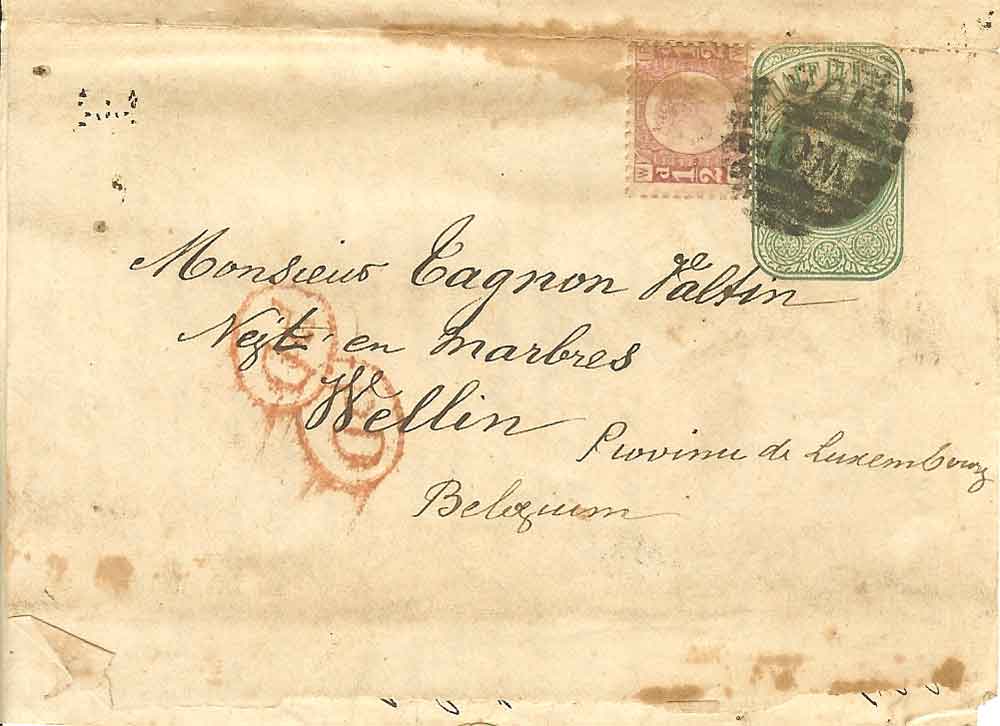 W V
d 1/2
HALF
Monsieur Tagnon Valtin
Negt. en marbres
Wellin
Province de Luxembourg
Belgium